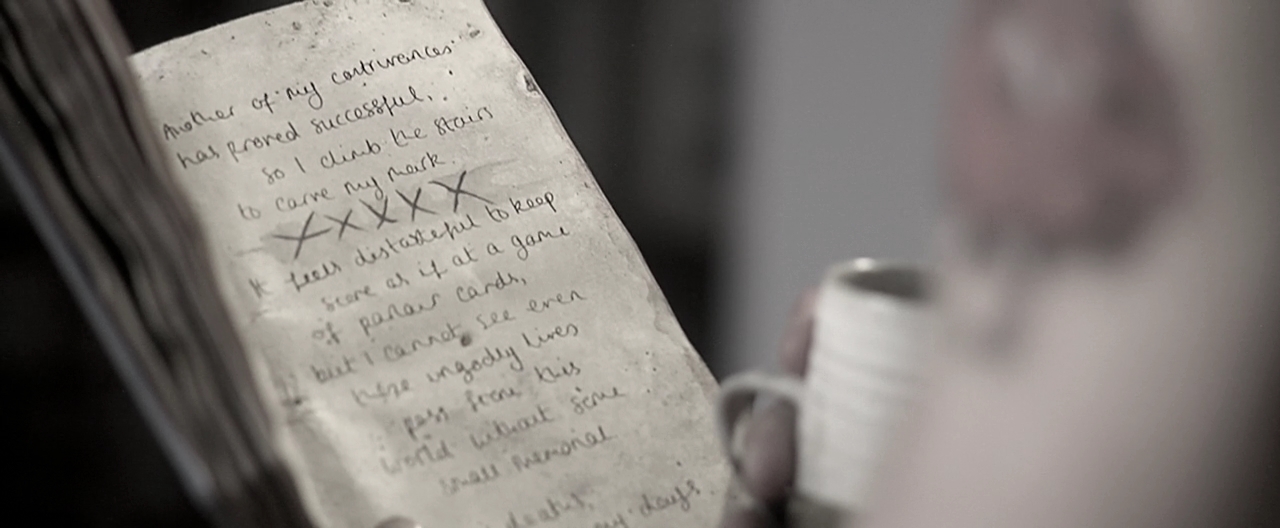 Another of my contrivances
has proved successful,
so I climb the stairs
to carve my mark.
XXXXX
It feels distasteful to keep
score as if at a game
of parlour cards,
but I cannot see even
these ungodly lives
pass from this
world without some
small memorial
deaths,
my days.